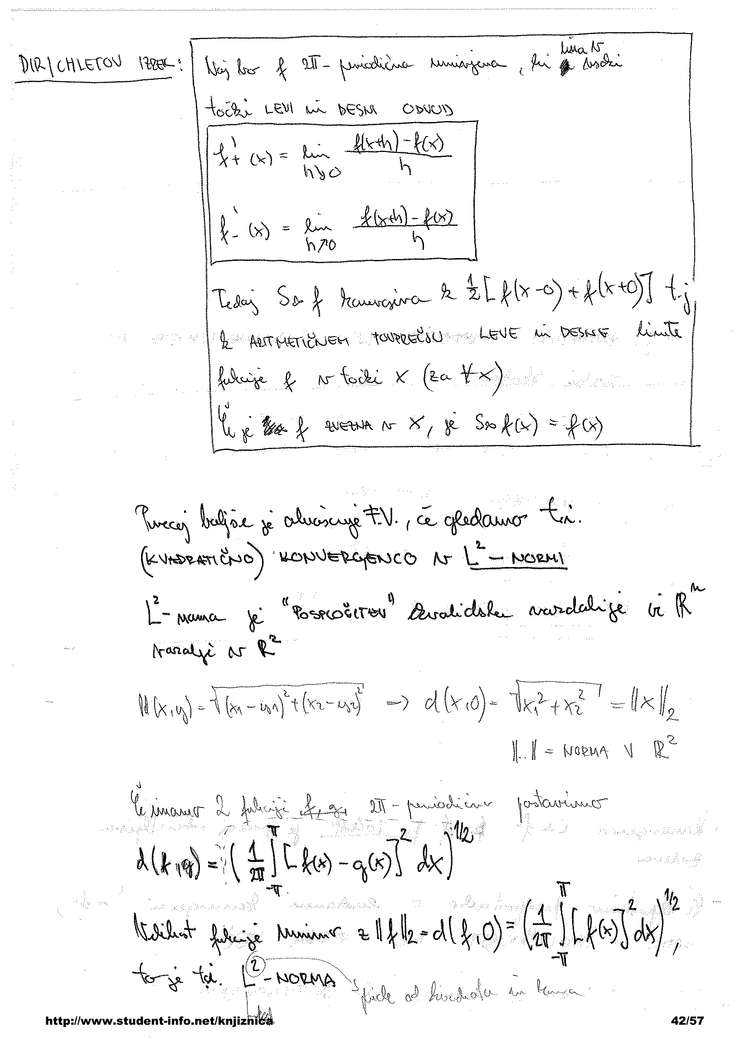 DIRICHLETOV IZREK: Naj bo f 2π-periodična omejena, ki ima v vsaki
točki LEVI in DESNI ODVOD
f'₊(x) = lim_{h↘0} (f(x+h) - f(x))/h
f'₋(x) = lim_{h↗0} (f(x+h) - f(x))/h
Tedaj S∞ f konvergira k 1/2 [f(x-0) + f(x+0)] t.j.
k ARITMETIČNEM POVPREČJU LEVE in DESNE limite
funkcije f v točki x (za ∀x)
Če je f ZVEZNA v x, je S∞f(x) = f(x)
Precej boljše je F.V., če gledamo t.i.
(KVADRATIČNO) KONVERGENCO v L²-NORMI
L²-norma je "POSPLOŠITEV" razdalije ℝⁿ
v ℝ²
d(x,y) = √((x₁-y₁)²+(x₂-y₂)²) ⇒ d(x,0) = √(x₁²+x₂²) = ||x||₂
||..|| = NORMA V ℝ²
Če imamo 2 funkciji f, g, 2π-periodični postavimo
d(f,g) = (1/2π ∫_{-π}^{π} [f(x) - g(x)]² dx)^{1/2}
funkcije z ||f||₂ = d(f,0) = (1/2π ∫_{-π}^{π} [f(x)]² dx)^{1/2},
to je t.i. L²-NORMA
pride od kvadrata in
http://www.student-info.net/knjiznica 42/57